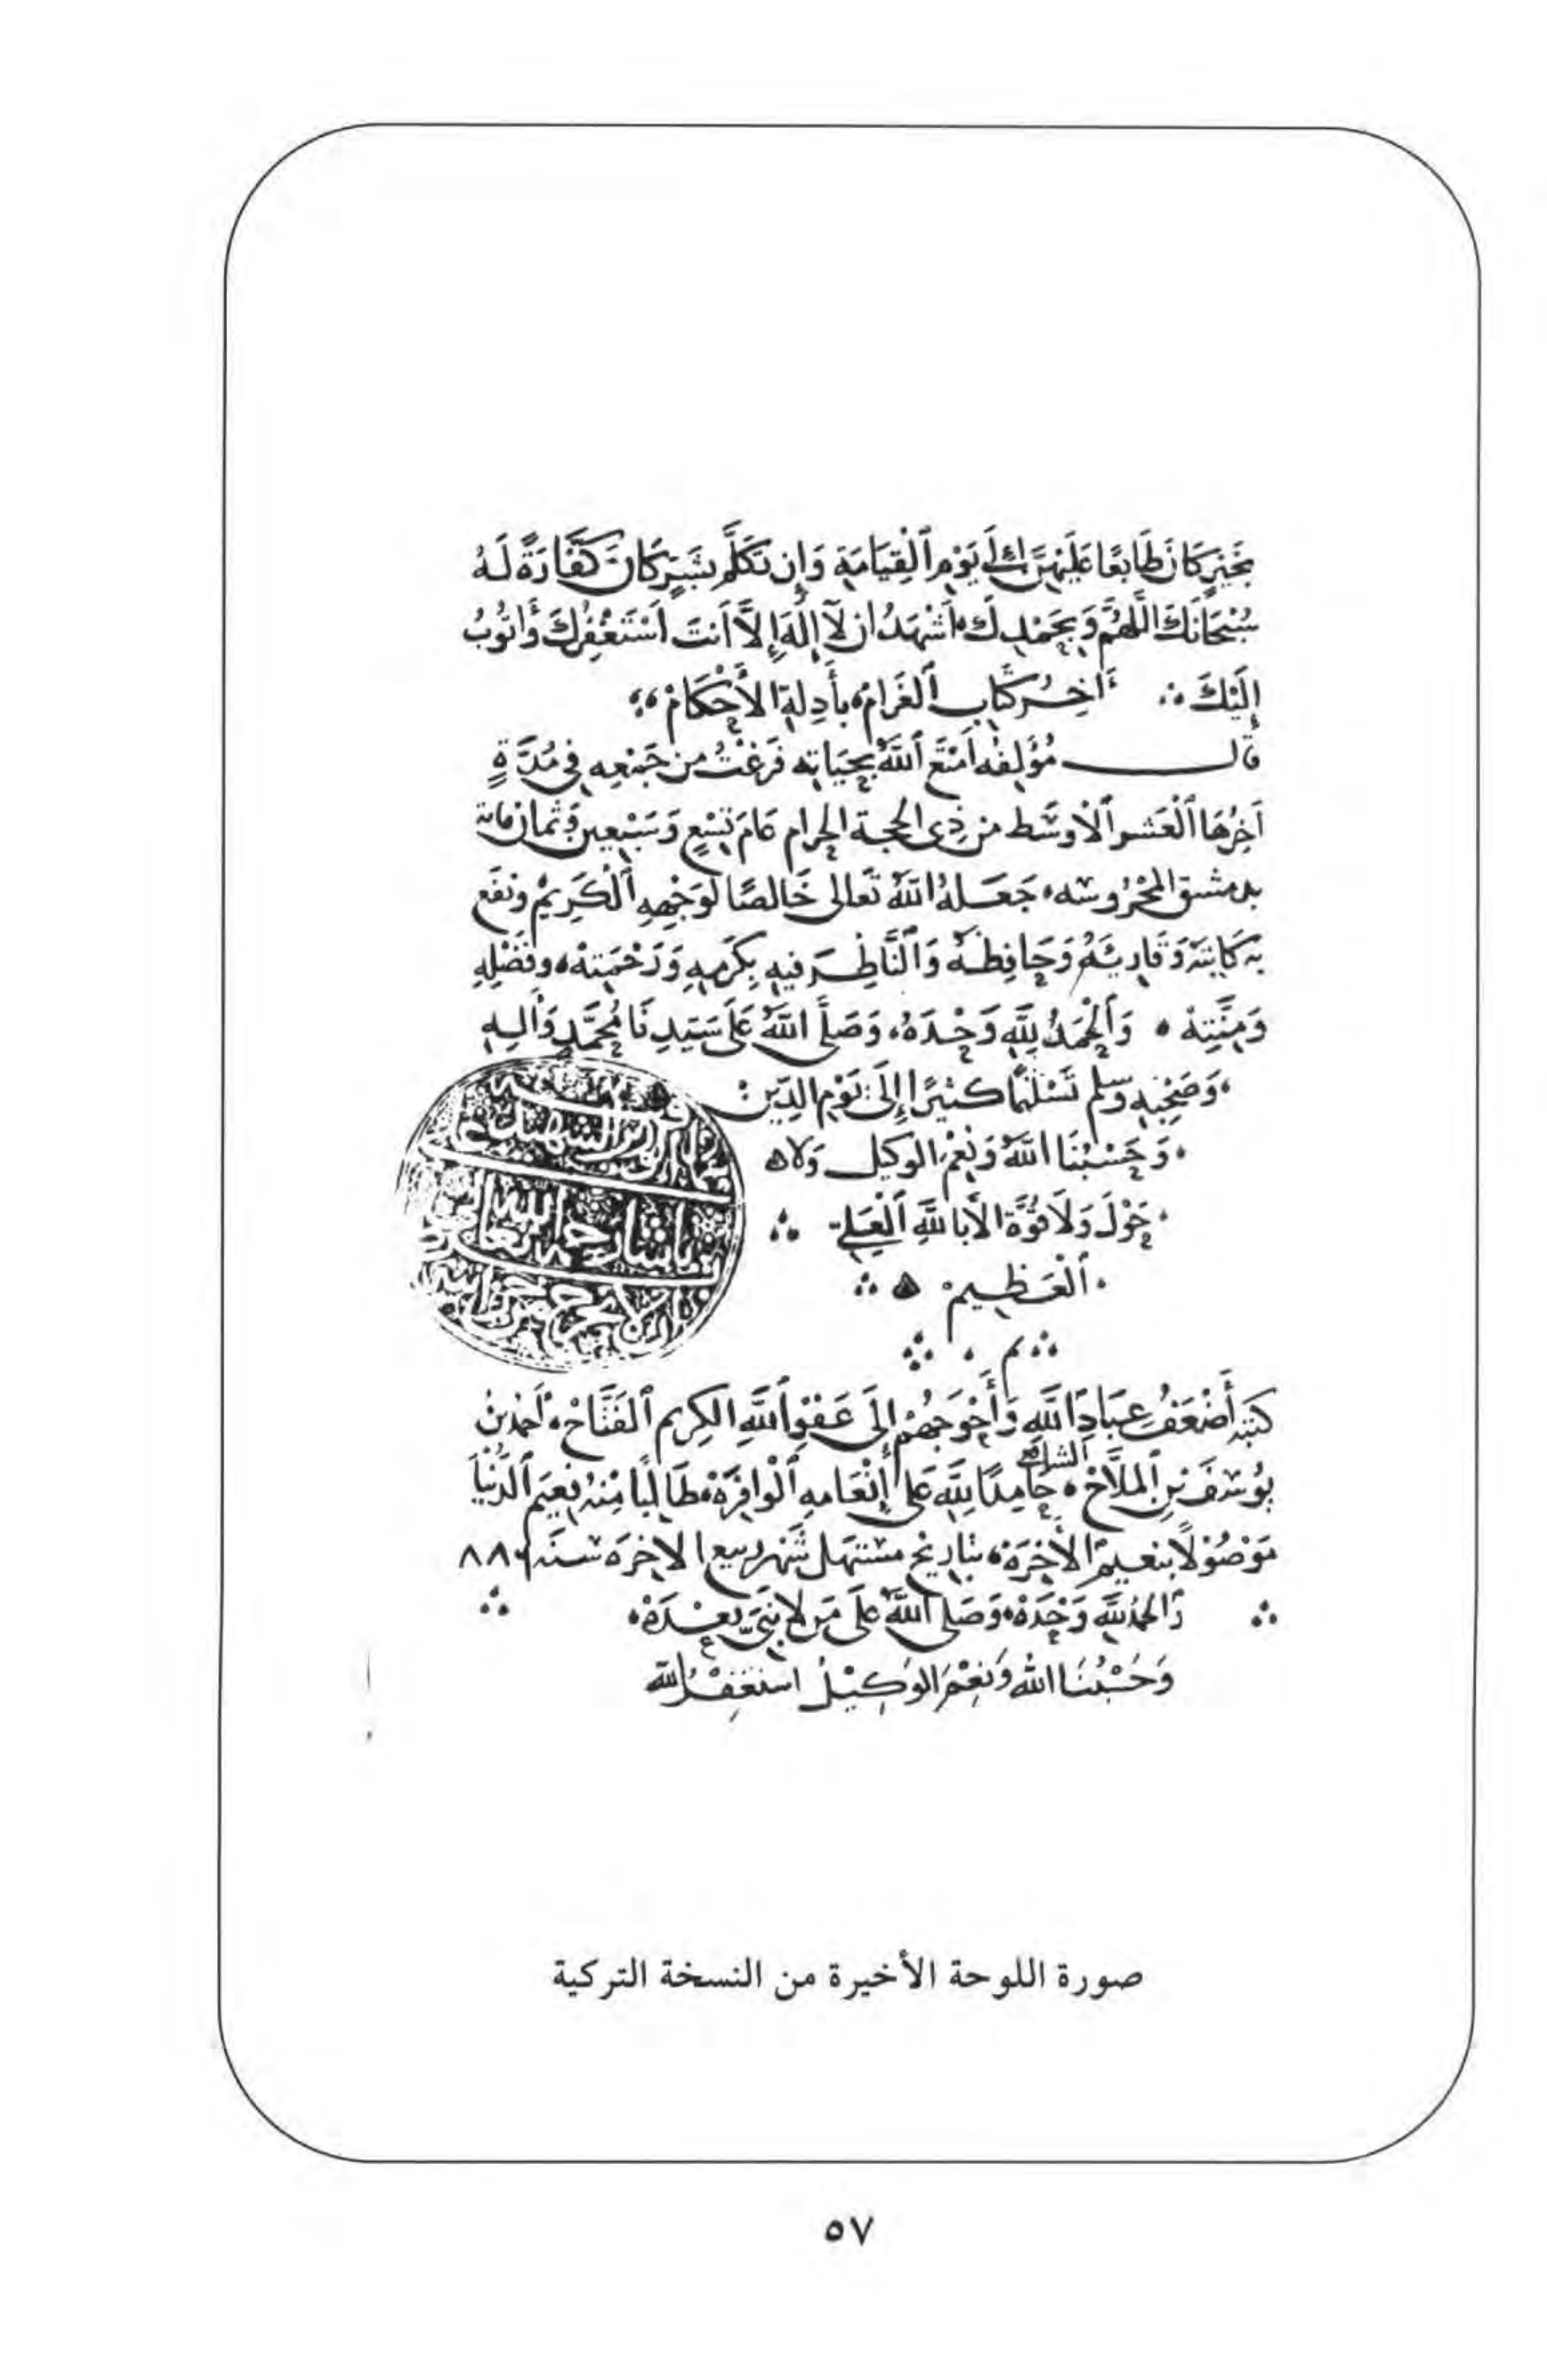 بِخَيْرٍ كَانَ طَابَعًا عَلَيْهِنَّ إِلَى يَوْمِ ٱلْقِيَامَةِ وَإِن تَكَلَّمَ بِشَرٍّ كَانَ كَفَّارَةً لَهُ
سُبْحَانَكَ اللَّهُمَّ وَبِحَمْدِكَ أَشْهَدُ ان لَآ إِلَهَ إِلَّا أَنتَ أَسْتَغْفِرُكَ وَأَتُوبُ
إِلَيْكَ ∴ آخِرُ كِتَابِ ٱلغَرَامْ بأَدِلةِ الأَحْكَامْ
قال مُؤَلِفُه أَمْتَعَ ٱللَّهُ بِحَيَاتِه فَرَغْتُ من جَمْعِهِ فِي مُدَّةٍ
آخِرُهَا ٱلْعَشر ٱلْأوسَط من ذِي الحِجة الحرام عَامَ تِسْعٍ وَسَبْعِين وَثمان مائة
بدمشق المحْرُوسه جَعَلهُ اللَّهُ تَعَالى خَالصًا لوَجْهِهِ ٱلْكَرِيمْ ونفَع
به كَاتِبَهُ وَقَارِئَهُ وَحَافِظَهُ وَٱلنَّاظِرَ فيهِ بِكَرَمِهِ وَرَحْمَتِهْ وفَضْلِهِ
وَمِنَّتِهْ وَٱلْحَمْدُ لِلَّهِ وَحْدَهُ، وَصَلَّى اللَّهُ عَلَى سَيِّدِنَا مُحَمَّدٍ وَآلِهِ
وَصَحْبِهِ وسلم تَسْلِيمًا كثيرًا إِلَى يَوْمِ الدِّين
وَحَسْبُنَا اللَّهُ وَنِعْمَ الوكيل وَلا ه
حَوْلَ وَلَا قُوَّةَ الَّا بِاللَّهِ ٱلْعَلِيّ ∴
ٱلْعَظِيم ه ∴
كتبَهُ أَضْعَفُ عِبَادِ اللَّهِ وَأَحْوَجُهُمْ إِلَى عَفْوِ ٱللَّهِ الكِرِيم ٱلفَتَّاحْ، أحمَدُ بنُ
يُوسُفَ بْنِ ٱلملَّاحْ الشافعي حَامِدًا لِلَّهِ عَلَى إِنْعَامِهِ ٱلْوَافِرَةْ، طَالِبًا مِنْهُ نعِيمَ ٱلدُّنْيَا
مَوْصُوْلًا بنعيم الأخِرَةْ، بتاريخ مستهل شَهْر ربيع الاخِرَه سَنَة ٨٨٦
وَالحمْدُ للَّهِ وَحْدَهْ، وَصَلى اللَّهُ عَلَى مَن لا نَبيَّ بَعْدَهْ،
وَحَسْبُنَا الله وَنِعْمَ الوَكِيْلُ استغفِرُ اللَّه
صورة اللوحة الأخيرة من النسخة التركية
٥٧